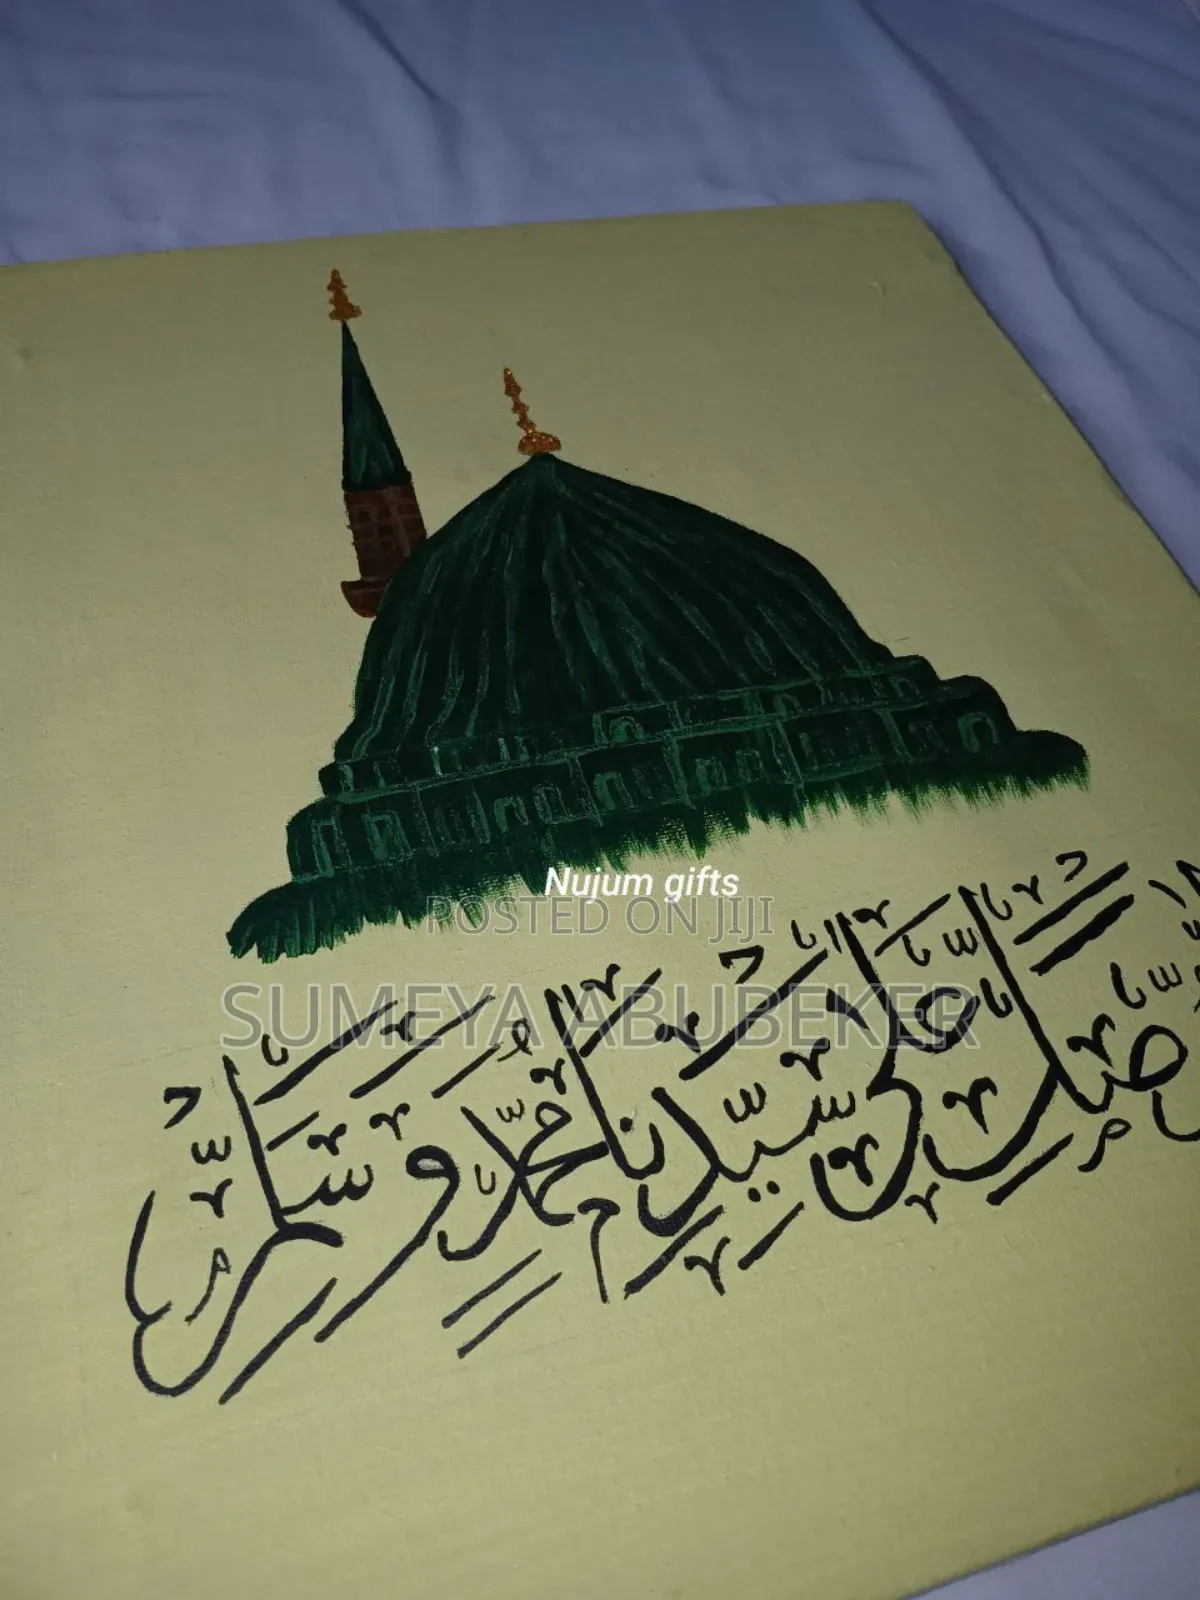 Nujum gifts
POSTED ON JIJI
SUMEYA ABUBEKER
صل على سيدنا محمد وسلم